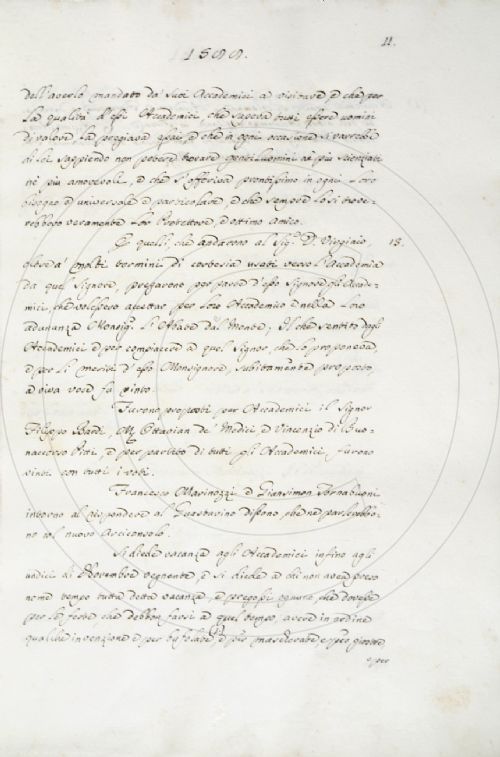 11.
1599.
dell'averlo mandato da' suoi Accademici a visitare, e che per
la qualità d'essi Accademici, che sapeva tutti essere uomini
di valore, la pregiava assai, e che in ogni occasione si varrebbe
di lei sappiendo non potere trovare gentiluomini nè più scienziati
nè più amorevoli, e che s'offeriva prontissimo in ogni loro
bisogno e universale e particolare, e che sempre lo si trove-
rebbono veramente lor Protettore, e ottimo amico.
E quelli, che andarono al Sig.r D. Virginio, 13.
oltre a' molti termini di cortesia usati verso l'Accademia
da quel Signore, per parte d'esso Signore gli Accade-
mici, che volessero accettar per loro Accademico e nella loro
adunanza Monsig.r l'Abate dal Monte; Il che sentito dagli
Accademici e per compiacere a quel Signor, che lo proponeva,
e per li meriti d'esso Monsignore, subitamente proposto,
a viva voce fu vinto.
Furono proposti per Accademici il Signor
Filippo Bardi, Ottavian de' Medici e Vincenzio di Buo-
naccorso Pitti, e per partito di tutti gli Accademici, furono
vinti con tutti i voti.
Francesco Marinozzi e Giansimon Tornabuoni
intorno al rispondere al Guastavino dissono, che ne parlerebbo-
no col nuovo Arciconsolo.
Si diede vacanza agli Accademici infino agli
undici di Novembre vegnente, e si diede a chi non avea preso
nome tempo tutta detta vacanza, e pregossi ognuno, che dovesse
per le feste che debbon farsi a quel tempo, avere in ordine
qualche invenzione e per e per mascherate, e però giostre,
e per